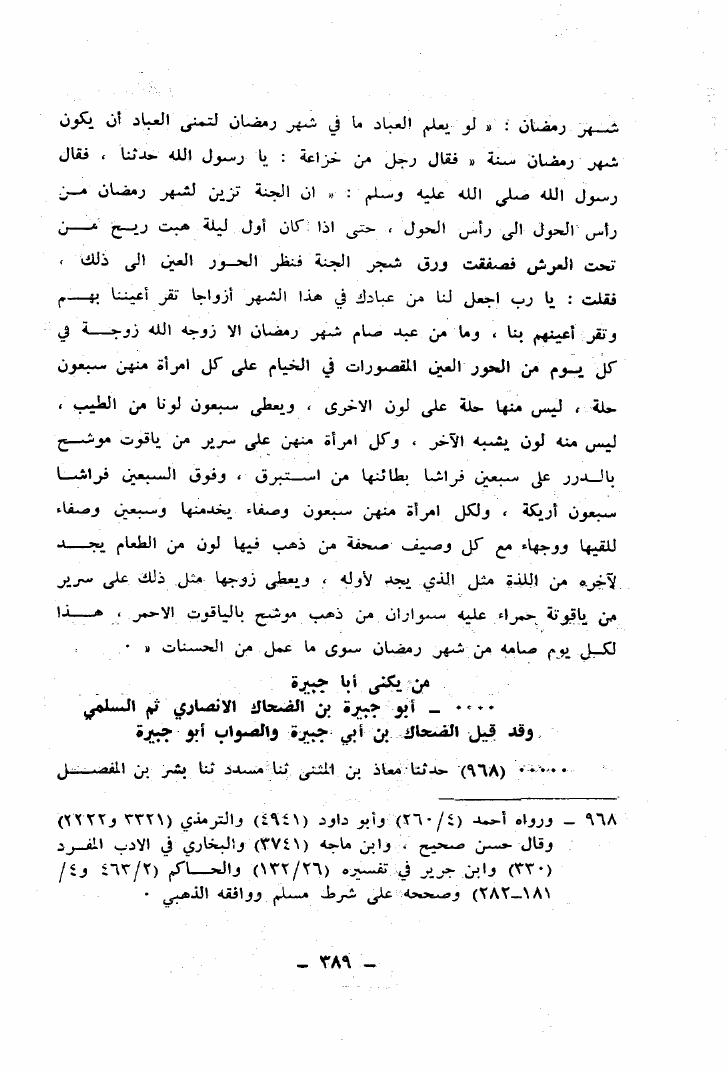 شهر رمضان : « لو يعلم العباد ما في شهر رمضان لتمنى العباد أن يكون
شهر رمضان سنة » فقال رجل من خزاعة : يا رسول الله حدثنا ، فقال
رسول الله صلى الله عليه وسلم : « ان الجنة تزين لشهر رمضان من
رأس الحول الى رأس الحول ، حتى اذا كان أول ليلة هبت ريح من
تحت العرش فصفقت ورق شجر الجنة فنظر الحور العين الى ذلك ،
فقلت : يا رب اجعل لنا من عبادك في هذا الشهر أزواجا تقر أعيننا بهم
وتقر أعينهم بنا ، وما من عبد صام شهر رمضان الا زوجه الله زوجة في
كل يوم من الحور العين المقصورات في الخيام على كل امرأة منهن سبعون
حلة ، ليس منها حلة على لون الاخرى ، ويعطى سبعون لونا من الطيب ،
ليس منه لون يشبه الآخر ، وكل امرأة منهن على سرير من ياقوت موشح
بالدرر على سبعين فراشا بطائنها من استبرق ، وفوق السبعين فراشا
سبعون أريكة ، ولكل امرأة منهن سبعون وصفاء يخدمنها وسبعين وصفاء
للقيها ووجهاء مع كل وصيف صحفة من ذهب فيها لون من الطعام يجد
لآخره من اللذة مثل الذي يجد لأوله ، ويعطى زوجها مثل ذلك على سرير
من ياقوتة حمراء عليه سواران من ذهب موشح بالياقوت الاحمر ، هذا
لكل يوم صامه من شهر رمضان سوى ما عمل من الحسنات » ٠
من يكنى أبا جبيرة
٠٠٠٠ ــ أبو جبيرة بن الضحاك الانصاري ثم السلمي
وقد قيل الضحاك بن أبي جبيرة والصواب أبو جبيرة
٠٠٠٠٠٠ (٩٦٨) حدثنا معاذ بن المثنى ثنا مسدد ثنا بشر بن المفضل
٩٦٨ ــ ورواه أحمد (٢٦٠/٤) وأبو داود (٤٩٤١) والترمذي (٣٣٢١ و٢٢٢٢)
وقال حسن صحيح ، وابن ماجه (٣٧٤١) والبخاري في الادب المفرد
(٣٣٠) وابن جرير في تفسيره (١٣٢/٢٦) والحاكم (٤٦٣/٢ و٤/
١٨١ــ٢٨٢) وصححه على شرط مسلم ووافقه الذهبي ٠
ــ ٣٨٩ ــ